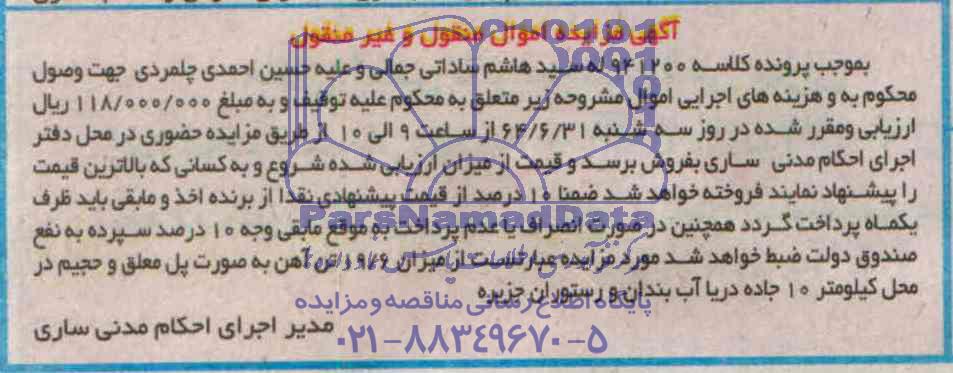 آگهی مزایده اموال منقول و غیر منقول
بموجب پرونده کلاسه ۹۴۱۲۰۰ له سید هاشم ساداتی جمالی و علیه حسین احمدی چلمردی جهت وصول
محکوم به و هزینه های اجرایی اموال مشروحه زیر متعلق به محکوم علیه توقیف و به مبلغ ۱۱۸/۰۰۰/۰۰۰ ریال
ارزیابی ومقرر شده در روز سه شنبه ۶۴/۶/۳۱ از ساعت ۹ الی ۱۰ از طریق مزایده حضوری در محل دفتر
اجرای احکام مدنی ساری بفروش برسد و قیمت از میزان ارزیابی شده شروع و به کسانی که بالاترین قیمت
را پیشنهاد نمایند فروخته خواهد شد ضمنا ۱۰ درصد از قیمت پیشنهادی نقدا از برنده اخذ و مابقی باید ظرف
یکماه پرداخت گردد همچنین در صورت انصراف یا عدم پرداخت به موقع مابقی وجه ۱۰ درصد سپرده به نفع
صندوق دولت ضبط خواهد شد مورد مزایده عبارتست از میزان تن آهن به صورت پل معلق و حجیم در
محل کیلومتر ۱۰ جاده دریا آب بندان و رستوران جزیره
مدیر اجرای احکام مدنی ساری
ParsNamadData
پایگاه اطلاع رسانی مناقصه و مزایده
۰۲۱-۸۸۳۴۹۶۷۰-۵